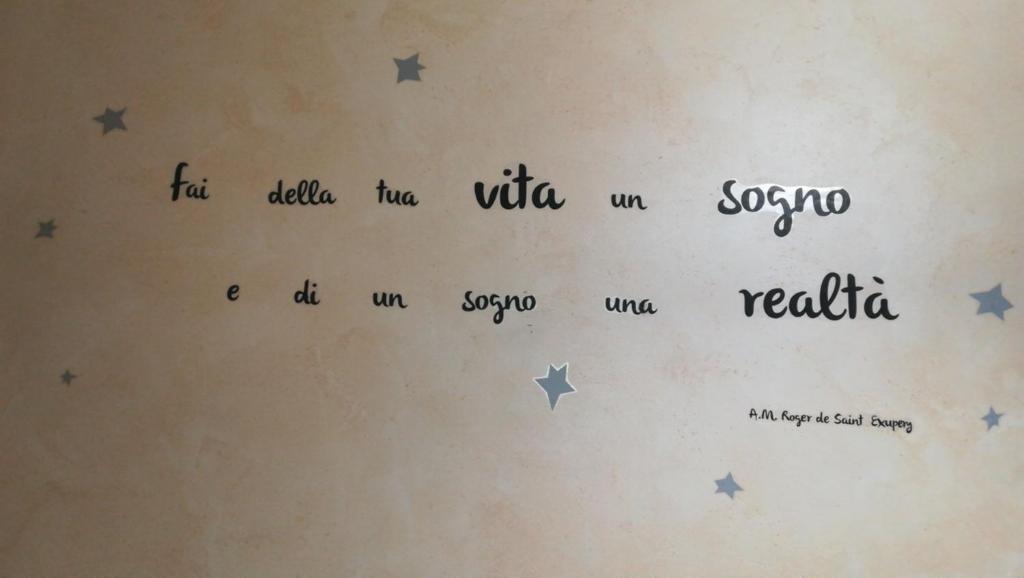 fai della tua vita un sogno
e di un sogno una realtà
A.M. Roger de Saint Exupery